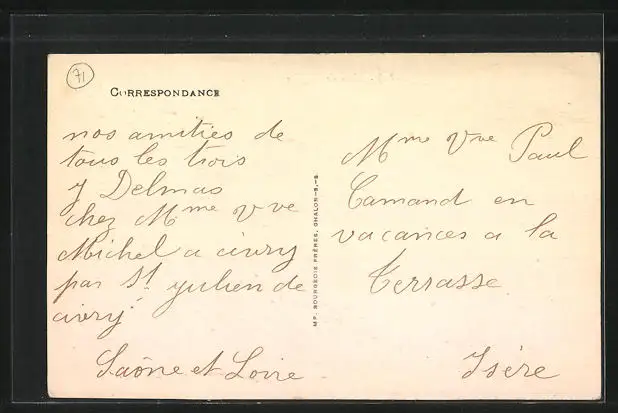 71
CORRESPONDANCE
nos amitiés de
tous les trois
y Delmas
chez Mme Vve
Michel a civry
par St Julien de
civry
Saône et Loire
IMP. BOURGEOIS FRÈRES, CHALON-S,-S
Mme Vve Paul
Camand en
vacances a la
Terrasse
Isère